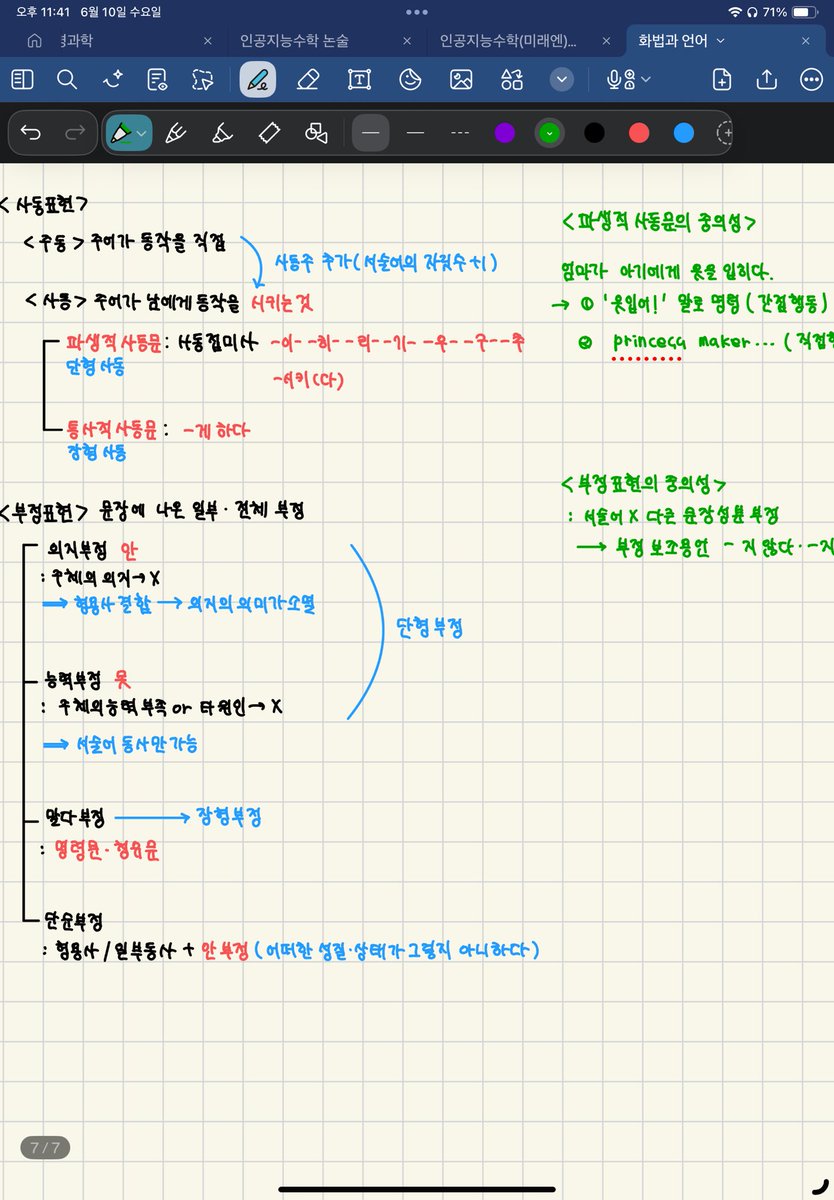 오후 11:41 6월 10일 수요일
71%
경과학
인공지능수학 논술
인공지능수학(미래엔)...
화법과 언어
<사동표현>
<주동> 주어가 동작을 직접
사동주 추가(서술어의 자릿수+1)
<사동> 주어가 남에게 동작을 시키는것
파생적 사동문: 사동접미사 -이- -히- -리- -기- -우- -구- -추
단형 사동
-시키(다)
통사적 사동문: -게 하다
장형 사동
<파생적 사동문의 중의성>
엄마가 아기에게 옷을 입히다.
→ ① '옷입어!' 말로 명령 (간접행동)
② princess maker... (직접행
<부정표현> 문장에 나온 일부·전체 부정
의지부정 안
: 주체의 의지→X
⟹ 형용사 결합 → 의지의 의미가 소멸
단형부정
능력부정 못
: 주체의 능력 부족 or 타원인→X
⟹ 서술어 동사만 가능
말다부정 → 장형부정
: 명령문·청유문
단순부정
: 형용사/일부동사 + 안부정 (어떠한 성질·상태가 그렇지 아니하다)
<부정표현의 중의성>
: 서술어 X 다른 문장성분 부정
→ 부정 보조용언 -지 않다·-지
7/7